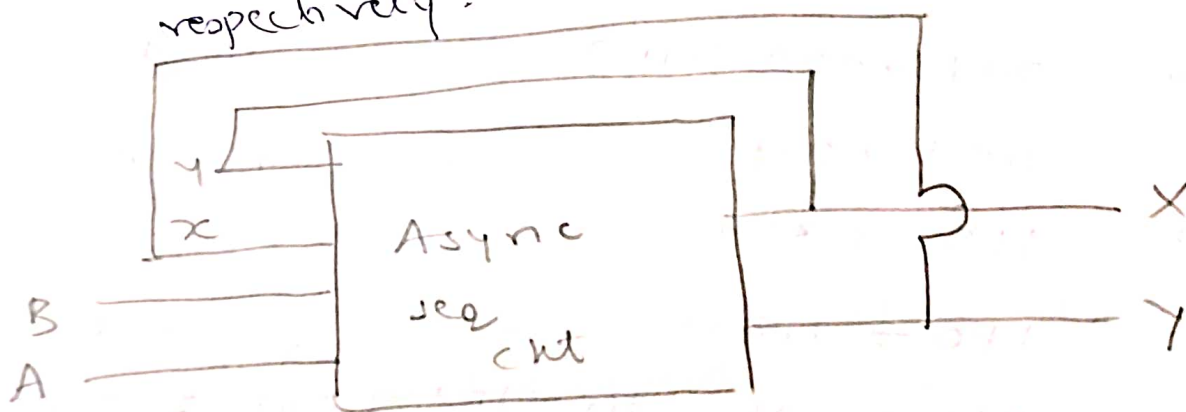 respectively.
y
x
B
A
Async
seq
ckt
X
Y